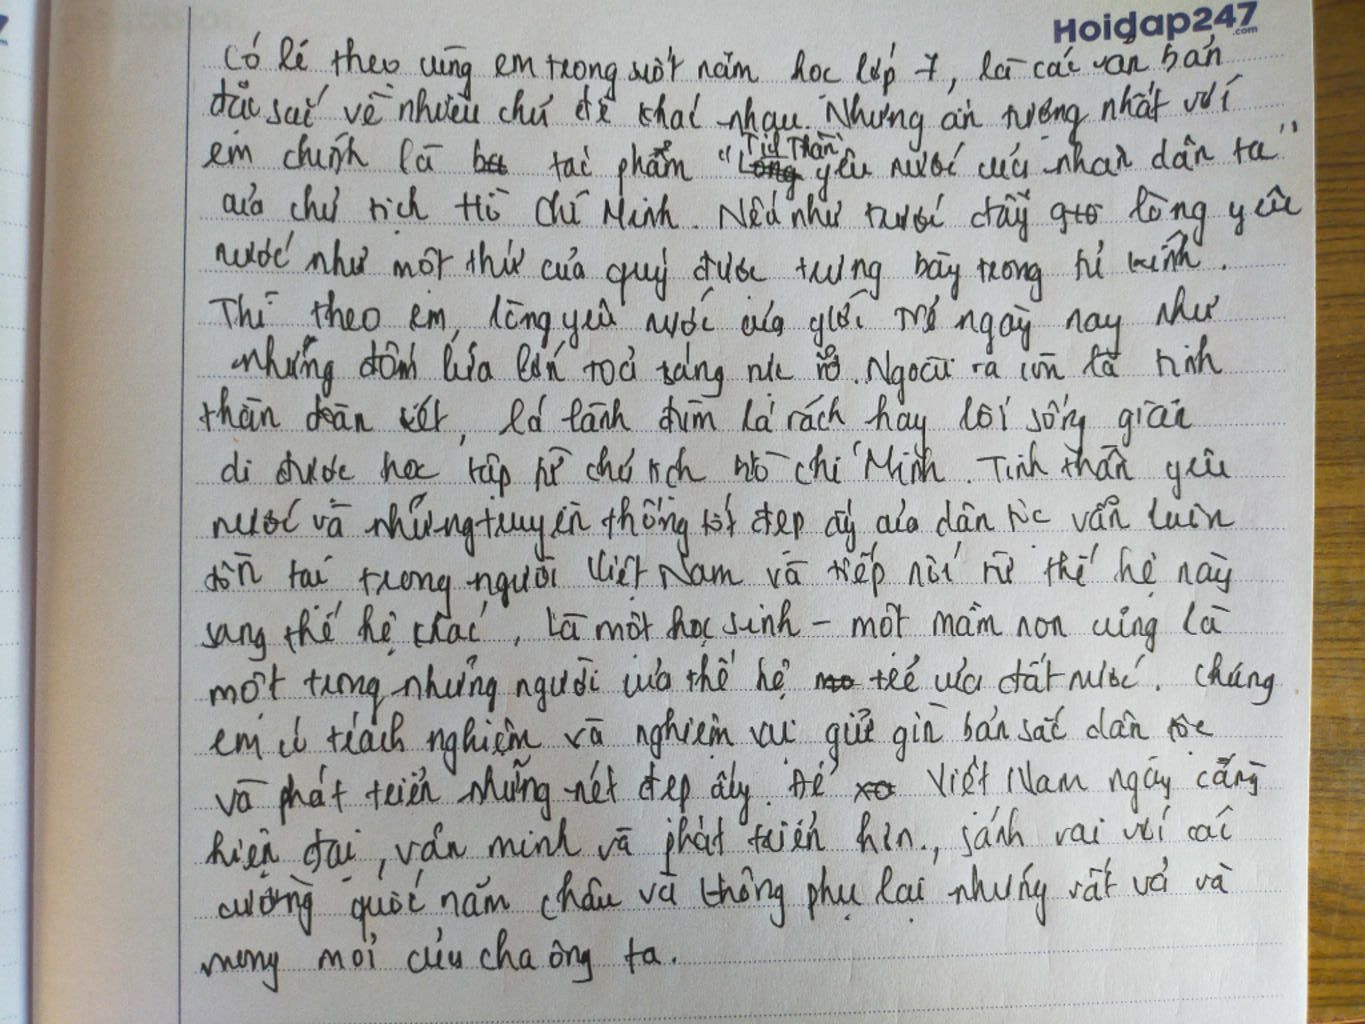 Hoidap247
.com
Có lẽ theo cùng em trong suốt năm học lớp 7, là các văn bản
đặc sắc về nhiều chủ đề khác nhau. Nhưng ấn tượng nhất với
em chính là tác phẩm "Tinh Thần yêu nước của nhân dân ta"
của chủ tịch Hồ Chí Minh. Nếu như trước đây lòng yêu
nước như một thứ của quý được trưng bày trong tủ kính.
Thì theo em, lòng yêu nước của giới trẻ ngày nay như
những đốm lửa lớn toả sáng rực rỡ. Ngoài ra còn là tinh
thần đoàn kết, lá lành đùm lá rách hay lối sống giản
dị được học tập từ chủ tịch Hồ Chí Minh. Tinh thần yêu
nước và những truyền thống tốt đẹp ấy của dân tộc vẫn luôn
tồn tại trong người Việt Nam và tiếp nối từ thế hệ này
sang thế hệ khác. Là một học sinh - một mầm non cũng là
một trong những người của thế hệ trẻ của đất nước. Chúng
em có trách nghiệm và nghiệm vụ giữ gìn bản sắc dân tộc
và phát triển những nét đẹp ấy. Để Việt Nam ngày càng
hiện đại, văn minh và phát triển hơn, sánh vai với các
cường quốc năm châu và không phụ lại những vất vả và
mong mỏi của cha ông ta.